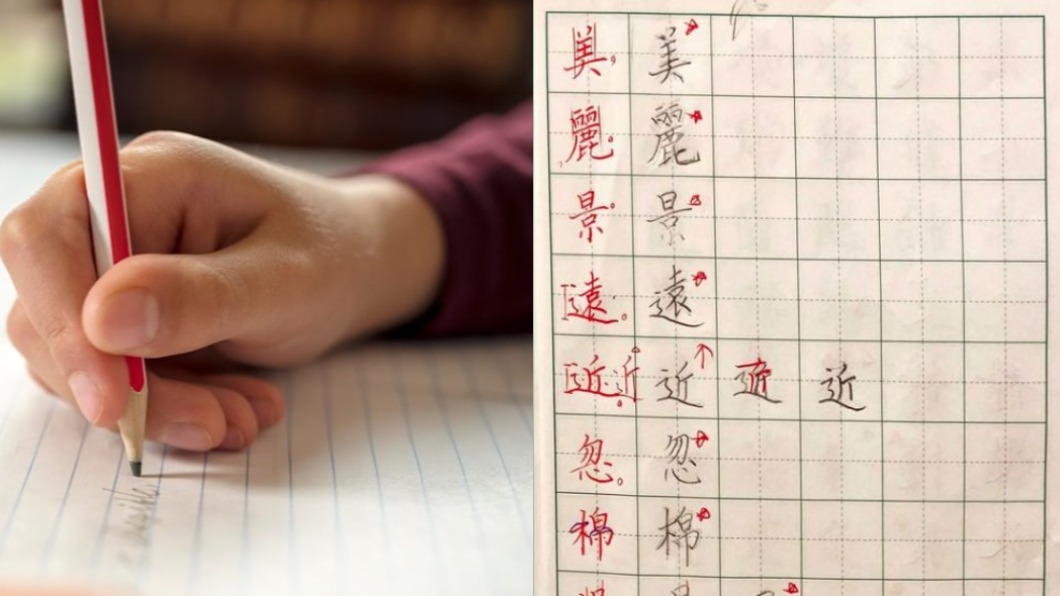 美 美
麗 麗
景 景
遠 遠
近 近 近 近 近
忽 忽
棉 棉